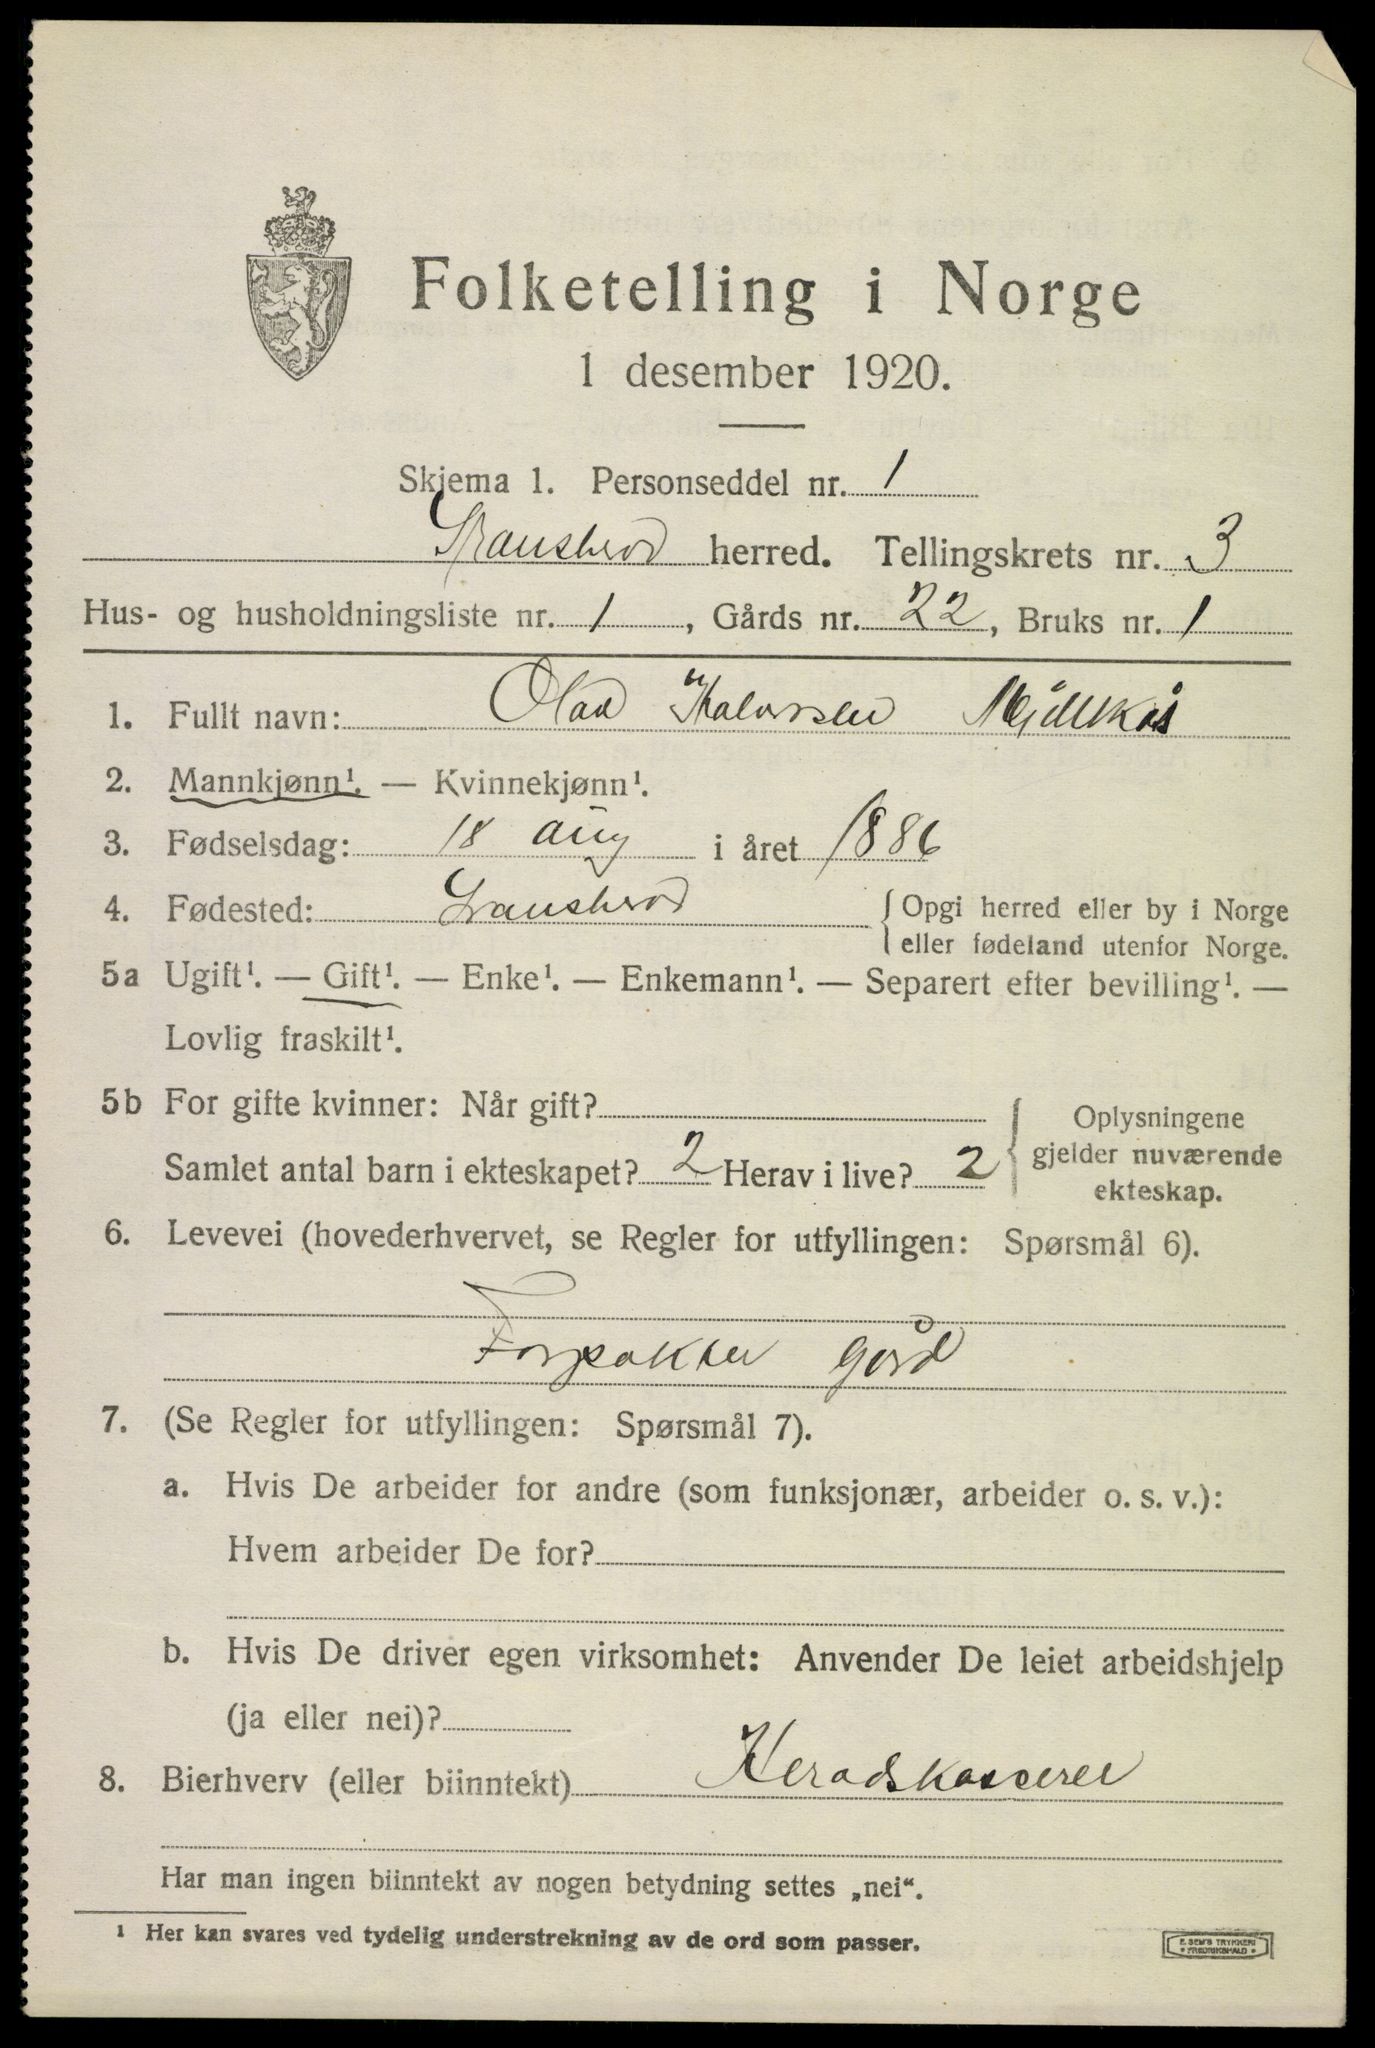 Folketelling i Norge
1 desember 1920.
Skjema 1. Personseddel nr. 1
Gransherad herred. Tellingskrets nr. 3
Hus- og husholdningsliste nr. 1, Gårds nr. 22, Bruks nr. 1
1. Fullt navn: Olav Halvorsen
2. Mannkjønn¹. — Kvinnekjønn¹.
3. Fødselsdag: 18 aug i året 1886
4. Fødested: Gransherad { Opgi herred eller by i Norge
eller fødeland utenfor Norge.
5a Ugift¹. — Gift¹. — Enke¹. — Enkemann¹. — Separert efter bevilling¹. —
Lovlig fraskilt¹.
5b For gifte kvinner: Når gift?
Samlet antal barn i ekteskapet? 2 Herav i live? 2
Oplysningene
gjelder nuværende
ekteskap.
6. Levevei (hovederhvervet, se Regler for utfyllingen: Spørsmål 6).
Forpakter gård
7. (Se Regler for utfyllingen: Spørsmål 7).
a. Hvis De arbeider for andre (som funksjonær, arbeider o. s. v.):
Hvem arbeider De for?
b. Hvis De driver egen virksomhet: Anvender De leiet arbeidshjelp
(ja eller nei)?
8. Bierhverv (eller biinntekt) Heradskasserer
Har man ingen biinntekt av nogen betydning settes „nei“.
¹ Her kan svares ved tydelig understrekning av de ord som passer.
E. SEM'S TRYKKERI
FREDRIKSHALD